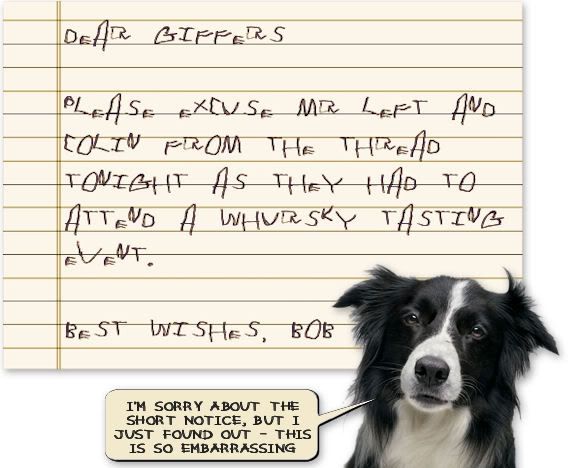 DEAR GIFFERS
PLEASE EXCUSE MR LEFT AND
COLIN FROM THE THREAD
TONIGHT AS THEY HAD TO
ATTEND A WHURSKY TASTING
EVENT.
BEST WISHES, BOB
I'M SORRY ABOUT THE
SHORT NOTICE, BUT I
JUST FOUND OUT - THIS
IS SO EMBARRASSING